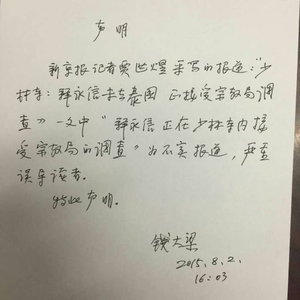 声明
新京报记者贾世煜采写的报道:"少
林寺:释永信未去泰国 正接受宗教局调
查》一文中"释永信正在少林寺内接
受宗教局的调查"为不实报道,严重
误导读者。
特此声明。
钱大梁
2015.8.2.
16:03